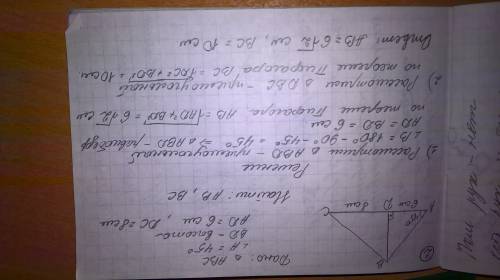 ②
Дано: △ ABC
∠A = 45°
BD - высота
AD = 6 см, DC = 8 см
Найти: AB, BC
B
45°
A 6 см D 8 см C
Решение
1) Рассмотрим △ ABD - прямоугольный
∠B = 180° - 90° - 45° = 45° ⇒ △ ABD - равнобедр
AD = BD = 6 см
по теореме Пифагора AB = √AD² + BD² = 6√2 см
2) Рассмотрим △ DBC - прямоугольный
по теореме Пифагора BC = √DC² + BD² = 10 см
Ответ: AB = 6√2 см, BC = 10 см